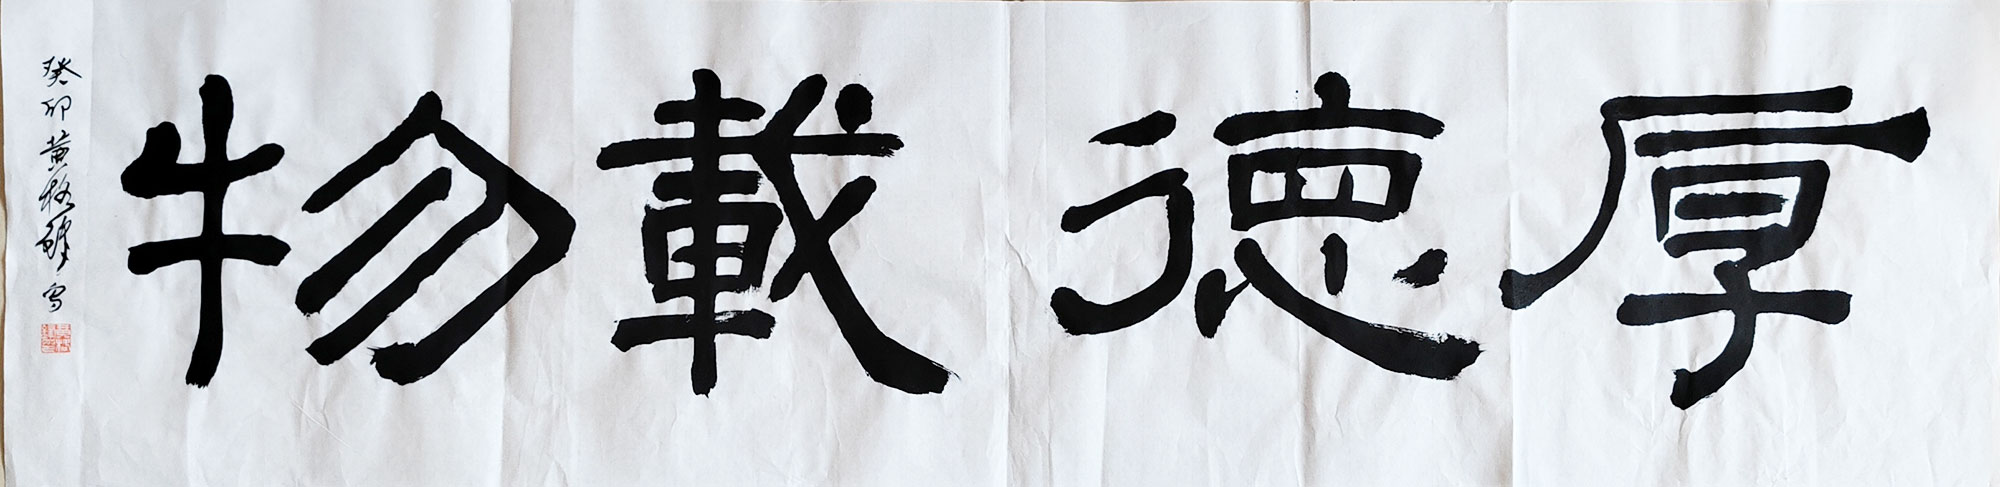 厚德載物
癸卯黄格勝写